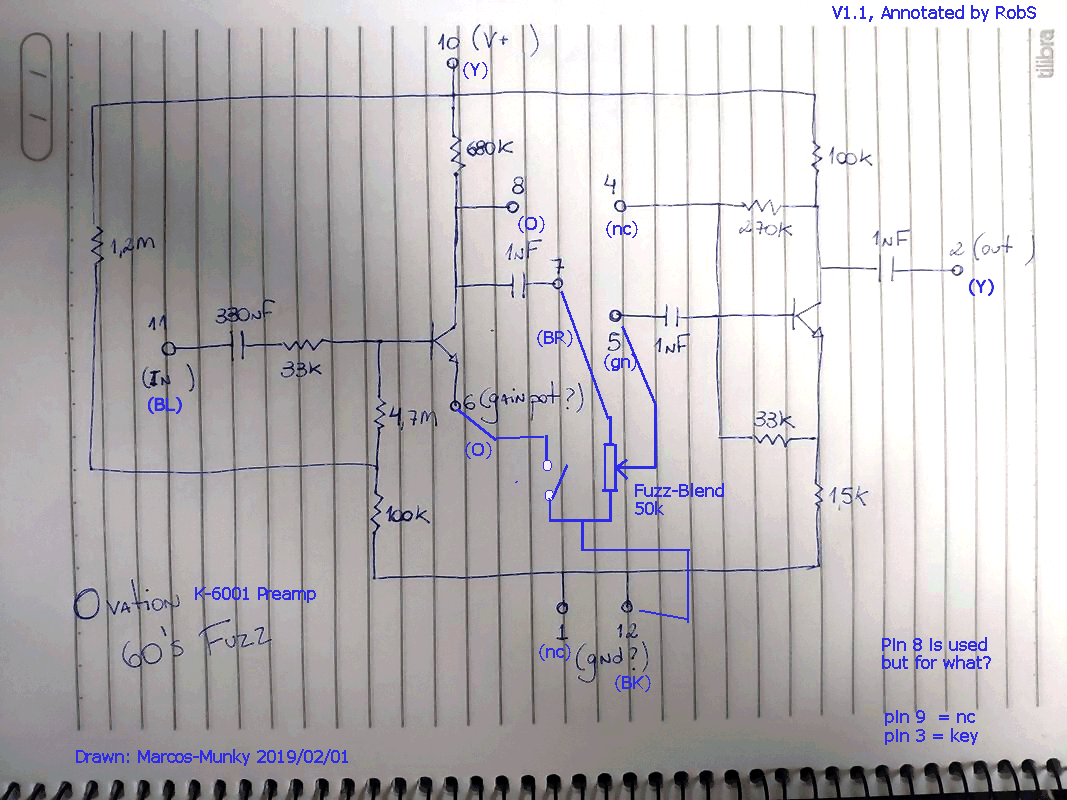 V1.1, Annotated by RobS
tilibra
10 (V+ )
(Y)
680K
100K
8
(O)
4
(nc)
270K
1,2M
1nF
7
1nF
2 (out )
(Y)
11
330nF
(IN )
(BL)
33K
(BR)
5
(gn)
1nF
6 (gain pot?)
(O)
4,7M
33K
Fuzz-Blend
50k
100K
1,5K
Ovation
K-6001 Preamp
60's Fuzz
1
(nc)
12
(gnd?)
(BK)
Pin 8 is used
but for what?
pin 9 = nc
pin 3 = key
Drawn: Marcos-Munky 2019/02/01